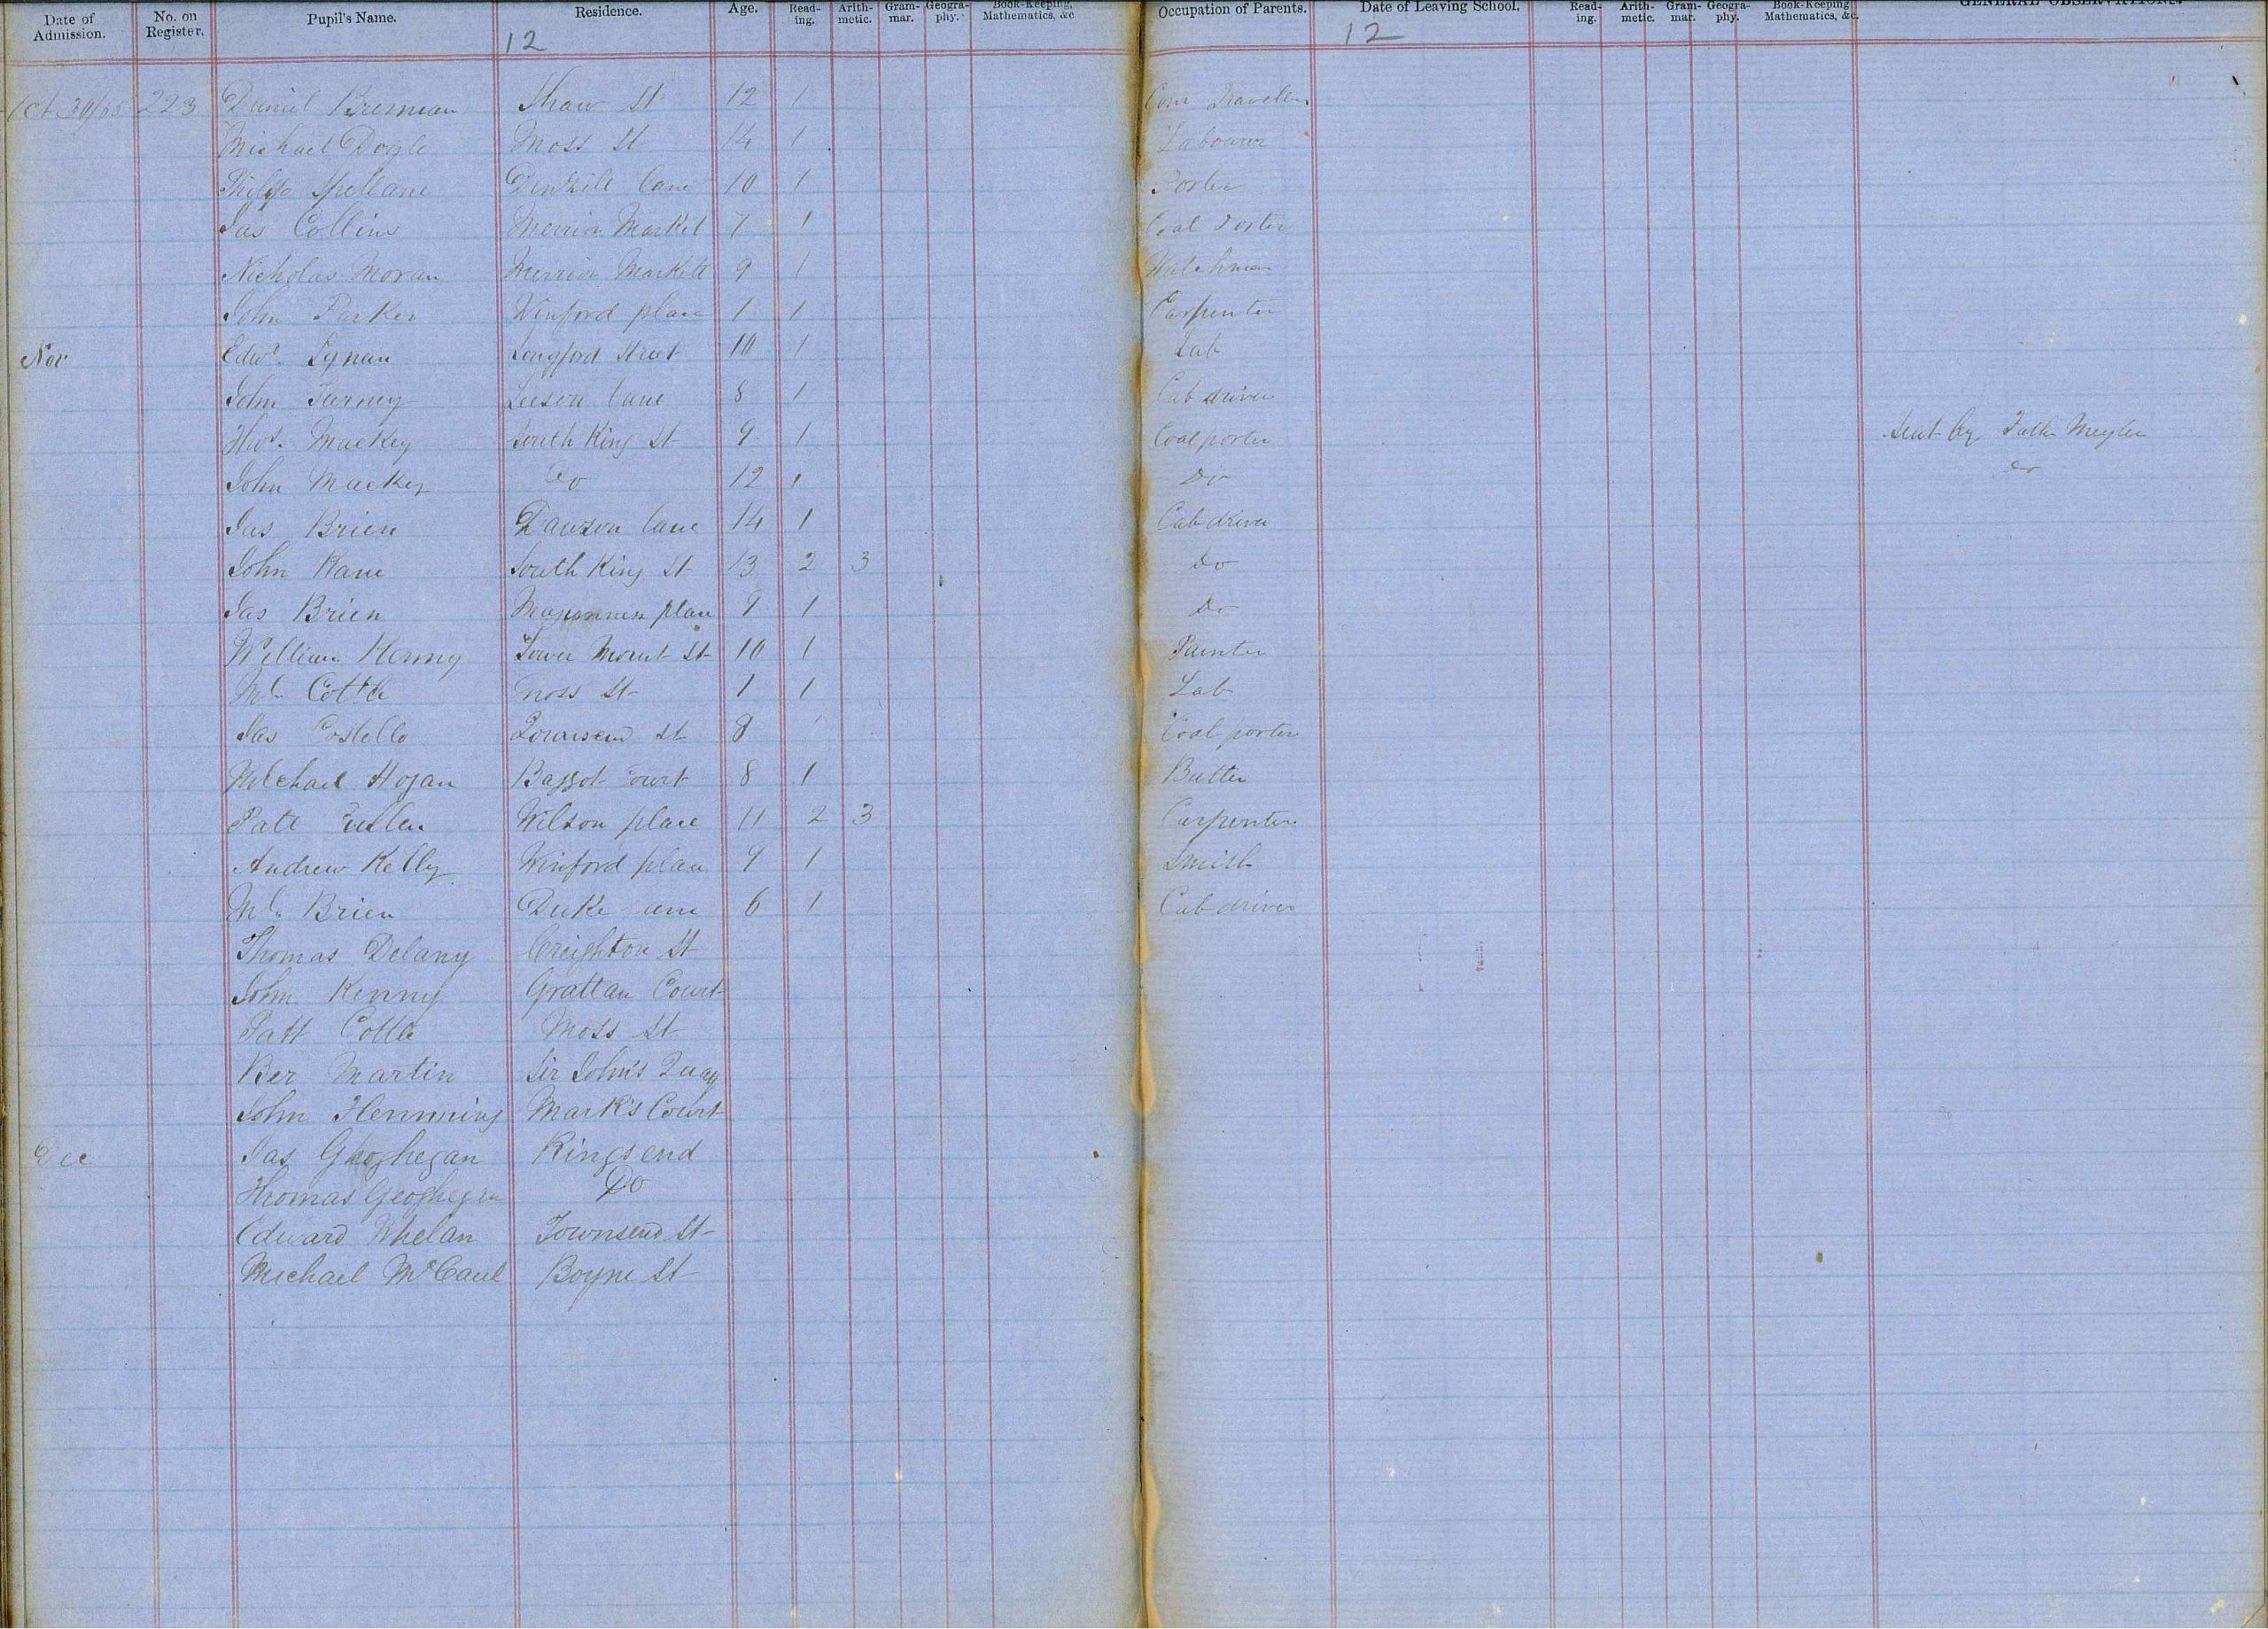 Date of Admission. No. on Register. Pupil's Name. Residence. Age. Read-ing. Arith-metic. Gram-mar. Geogra-phy. Book-Keeping, Mathematics, &c Occupation of Parents. Date of Leaving School. Read-ing. Arith-metic. Gram-mar. Geogra-phy. Book-Keeping Mathematics, &c. GENERAL OBSERVATIONS.
12 12
Oct 30/65 223 Daniel Brennan Shaw St 12 1 Com Traveler
Michael Doyle Moss St 14 1 Labourer
Philip Spellane Denzile lane 10 1 Porter
Jas Collins Merrion Market 7 1 Coal Porter
Nicholas Moran Merrion Markett 9 1 Watchman
John Parker Winford place 1 1 Carpenter
Nov Edwd. Lynan Longford Street 10 1 Lab
John Tierney Leeson lane 8 1 Cab driver
Thos. Mackey South King St 9 1 Coal porter Sent by Fath Meyler
John Mackey Do 12 1 Do do
Jas Brien Dawson lane 14 1 Cab driver
John Kane South King St 13 2 3 Do
Jas Brien place 9 1 Do
William Kenny Lower Mount St 10 1 Painter
Ml. Cottle Moss St 1 1 Lab
Jas Costello Townsend St 8 1 Coal porter
Michael Hogan Baggot Court 8 1 Butler
Patt Cullen Wilson place 11 2 3 Carpenter
Andrew Kelly Winford place 9 1 Smith
Ml. Brien Duke lane 6 1 Cab driver
Thomas Delany Creighton St
John Kenny Grattan Court
Patt Cottle Moss St
Ber Martin Sir John's Quay
John Flemming Mark's Court
Dec Jas Geoghegan Ringsend
Thomas Geoghegan Do
Edward Whelan Townsend St
Michael McCaul Boyne St